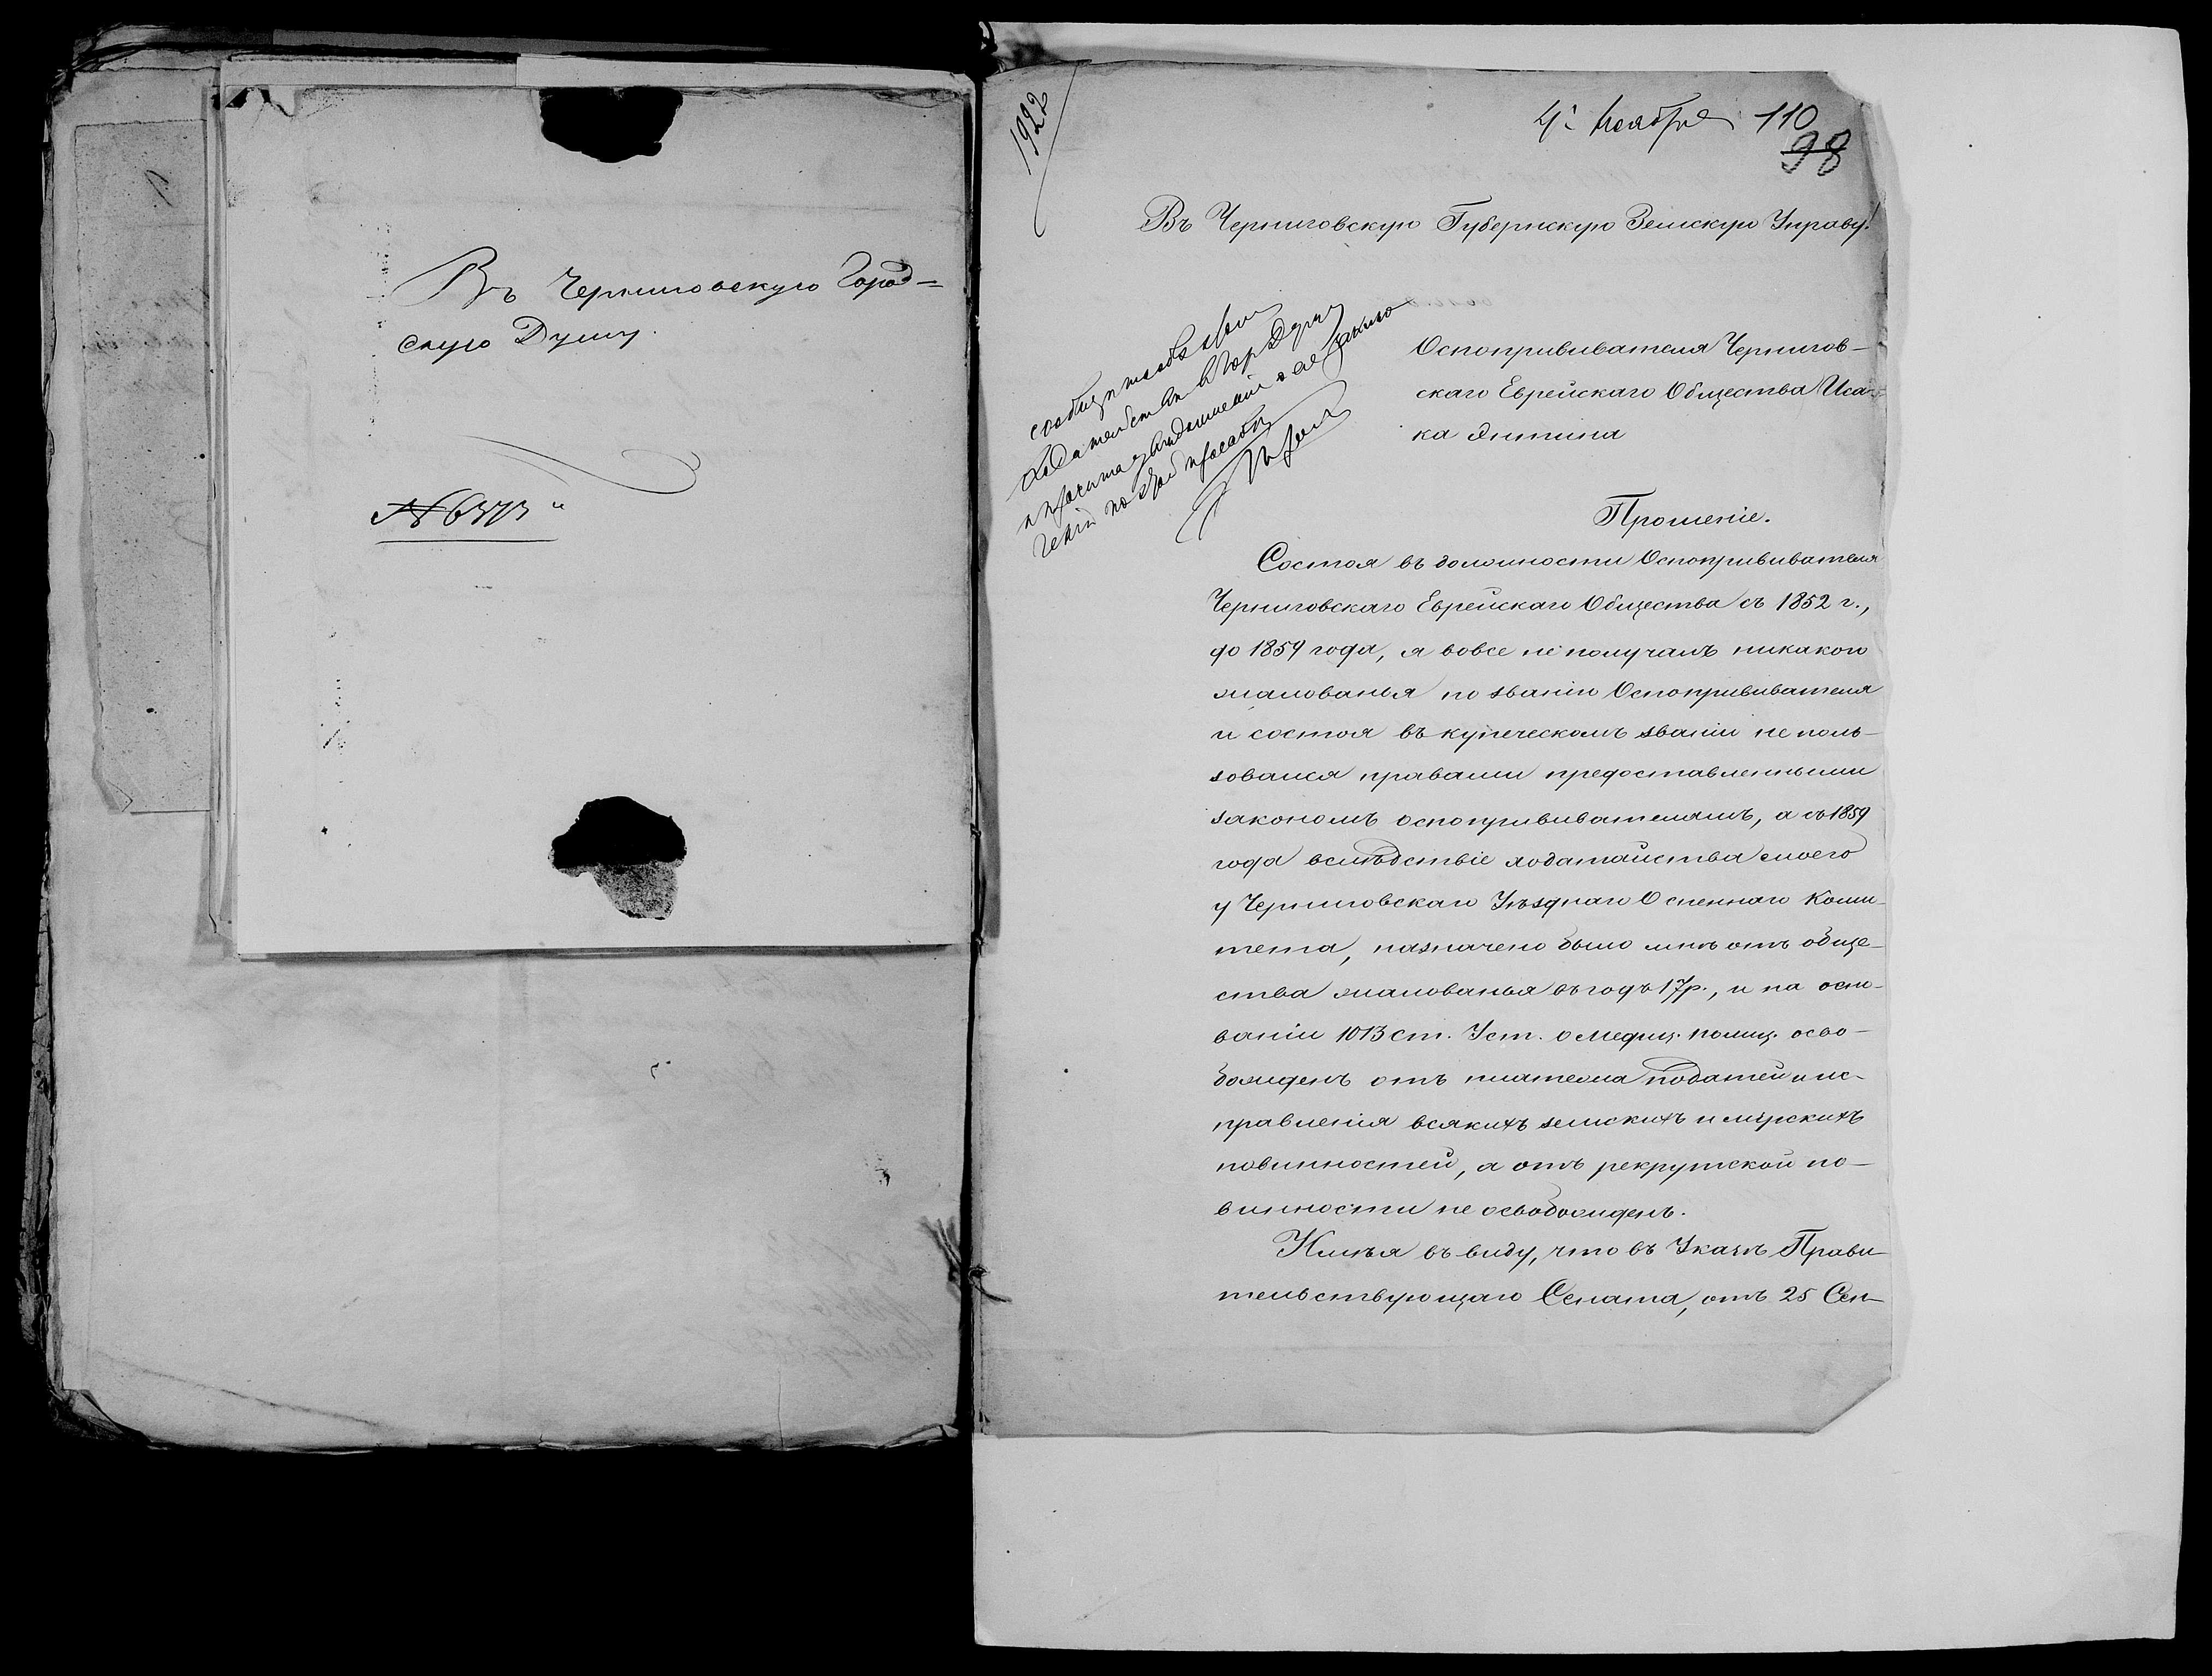 Въ Черниговскую Город=
скую Думу.
№ 6373
1922
4 Ноября 110
98
Въ Черниговскую Губернскую Земскую Управу!
Оспопрививателя Чернигов-
скаго Еврейскаго Общества Иса-
ка
Прошеніе.
Состоя въ должности Оспопрививателя
Черниговскаго Еврейскаго Общества съ 1852 г.,
до 1859 года, я вовсе не получалъ никакого
жалованья по званію Оспопрививателя
и состоя въ купеческомъ званіи не поль-
зовался правами предоставленными
закономъ оспопрививателямъ, а съ 1859
года вслѣдствіе ходатайства моего
у Черниговскаго Уѣзднаго Оспеннаго Коми-
тета, назначено было мнѣ отъ обще-
ства жалованья въ годъ 17 р., и на осно-
ваніи 1013 ст. Уст. о Медиц. полиц. осво-
божденъ отъ платежа податей и ис-
правленія всякихъ земскихъ и мірскихъ
повинностей, а отъ рекрутской по-
винности не освобожденъ.
Имѣя въ виду, что въ Указѣ Прави-
тельствующаго Сената, отъ 25 Сен-